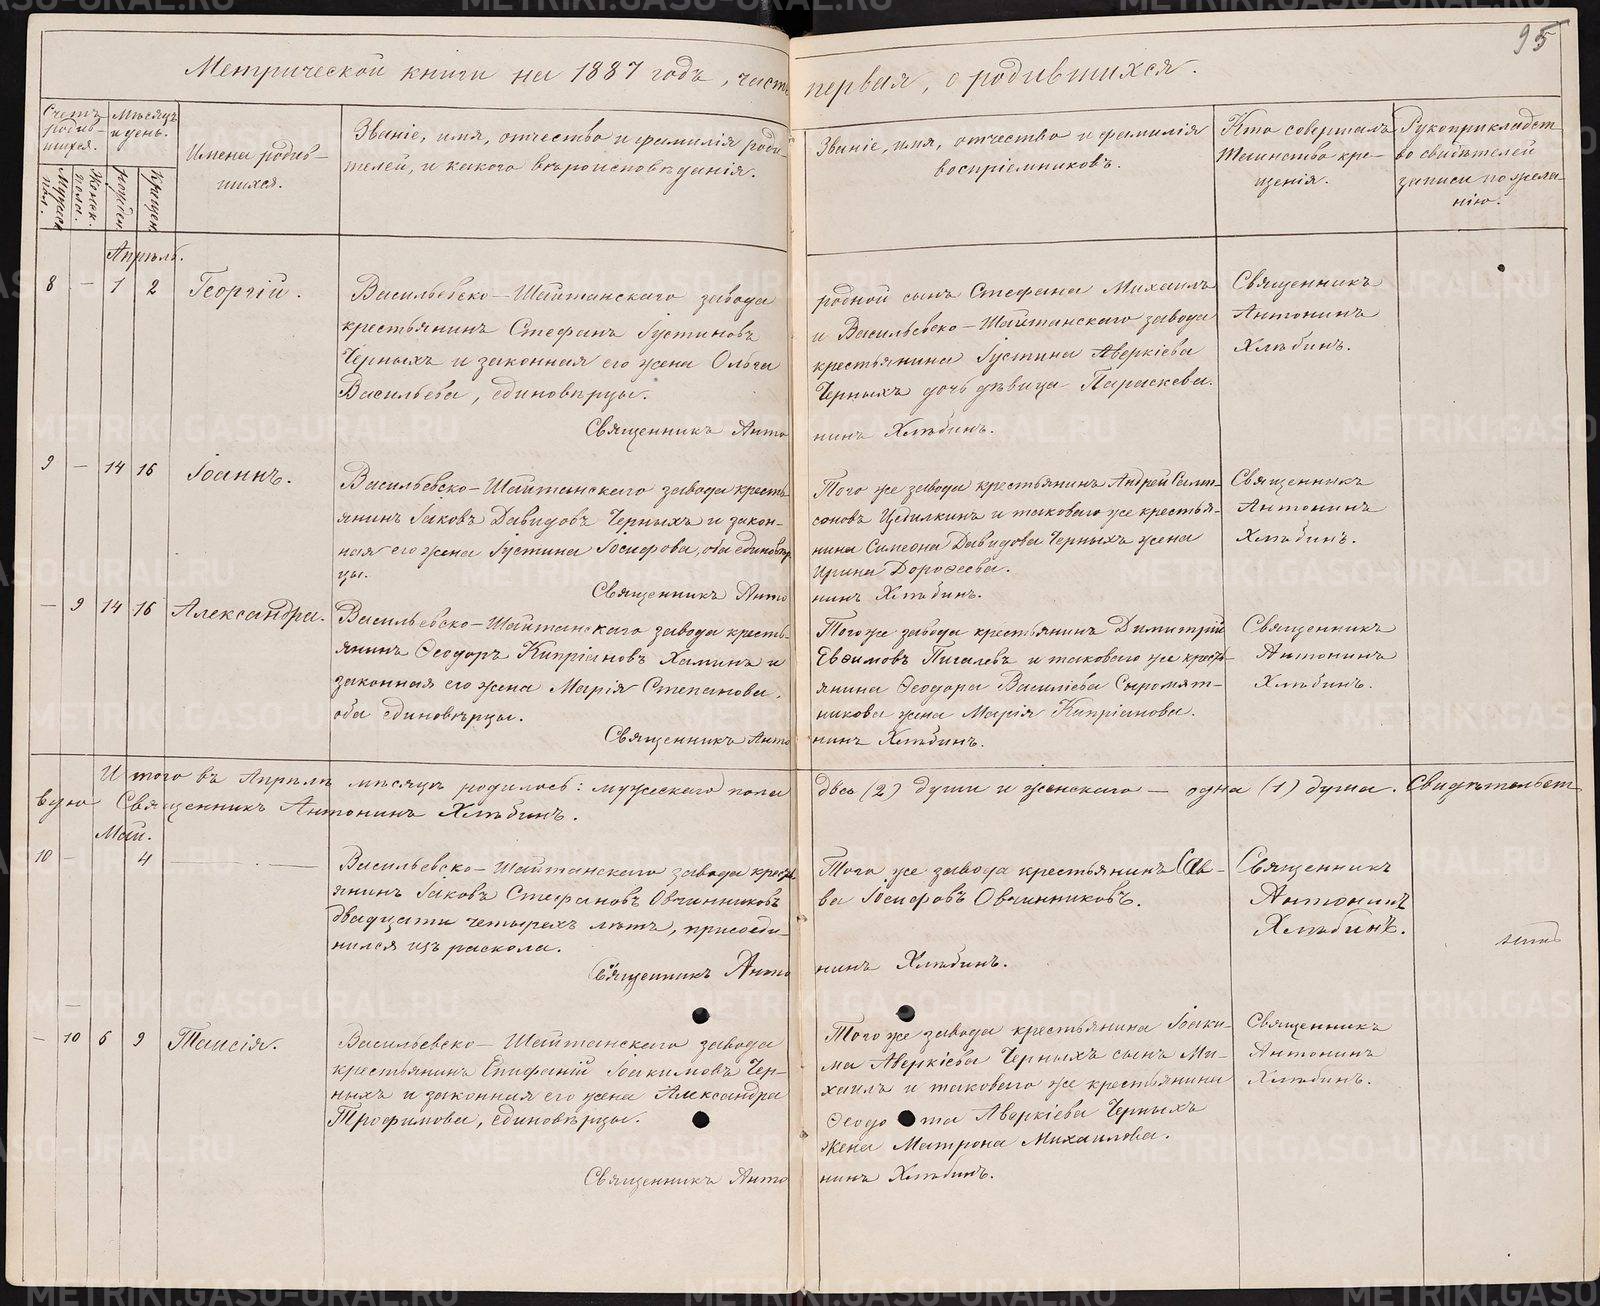 95
Метрической книги на 1887 годъ, часть первая, о родившихся.
Счетъ родив-
шихся.
Мѣсяцъ
и день.
Мужеск.
пол.
Женск.
пола.
рожден
крещен
Имена родив-
шихся.
Званіе, имя, отчество и фамилія роди-
телей, и какого вѣроисповѣданія.
Званіе, имя, отчество и фамилія
воспріемниковъ.
Кто совершалъ
таинство кре-
щенія.
Рукоприкладст
во свидѣтелей
записи по жела-
нію.
Апрѣль.
8 — 1 2 Георгій.
Васильевско-Шайтанскаго завода
крестьянинъ Стефанъ Іустиновъ
Черныхъ и законная его жена Ольга
Васильева, единовѣрцы.
родной сынъ Стефана Михаилъ
и Васильевско-Шайтанскаго завода
крестьянина Іустина Аверкіева
Черныхъ дочь дѣвица Параскева.
Священникъ
Антонинъ
Хлѣбинъ.
Священникъ Анто нинъ Хлѣбинъ.
9 — 14 16 Іоаннъ.
Васильевско-Шайтанскаго завода кресть-
янинъ Іаковъ Давидовъ Черныхъ и закон-
ная его жена Іустина Іосифова, оба единовѣр
цы.
Того же завода крестьянинъ Андрей Самп-
соновъ Цедилкинъ и таковаго же крестья-
нина Симеона Давидова Черныхъ жена
Ирина Дороѳеева.
Священникъ
Антонинъ
Хлѣбинъ.
Священникъ Анто нинъ Хлѣбинъ.
— 9 14 16 Александра.
Васильевско-Шайтанскаго завода кресть-
янинъ Ѳеодоръ Кипріановъ Хаминъ и
законная его жена Марія Степанова.
оба единовѣрцы.
Того же завода крестьянинъ Димитрій
Евѳимовъ Пигалевъ и таковаго же кресть-
янина Ѳеодора Василіева Сыромят-
никова жена Марія Кипріанова.
Священникъ
Антонинъ
Хлѣбинъ.
Священникъ Анто нинъ Хлѣбинъ.
Итого въ Апрѣлѣ мѣсяцѣ родилось: мужескаго пола двѣ (2) души и женскаго — одна (1) душа. Свидѣтельст
вую Священникъ Антонинъ Хлѣбинъ.
Май.
10 — 4
Васильевско-Шайтанскаго завода кресть
янинъ Іаковъ Стефановъ Овчинниковъ
двадцати четырехъ лѣтъ, присоеди-
нился изъ раскола.
Того же завода крестьянинъ Сав-
ва Іосифовъ Овчинниковъ.
Священникъ
Антонинъ
Хлѣбинъ.
Священникъ Анто нинъ Хлѣбинъ.
— 10 6 9 Таисія.
Васильевско-Шайтанскаго завода
крестьянинъ Епифаній Іоакимовъ Чер-
ныхъ и законная его жена Александра
Трофимова, единовѣрцы.
Того же завода крестьянина Іоаки-
ма Аверкіева Черныхъ сынъ Ми-
хаилъ и таковаго же крестьянина
Ѳеодо та Аверкіева Черныхъ
жена Матрона Михаилова.
Священникъ
Антонинъ
Хлѣбинъ.
Священникъ Анто нинъ Хлѣбинъ.
METRIKI.GASO-URAL.RU